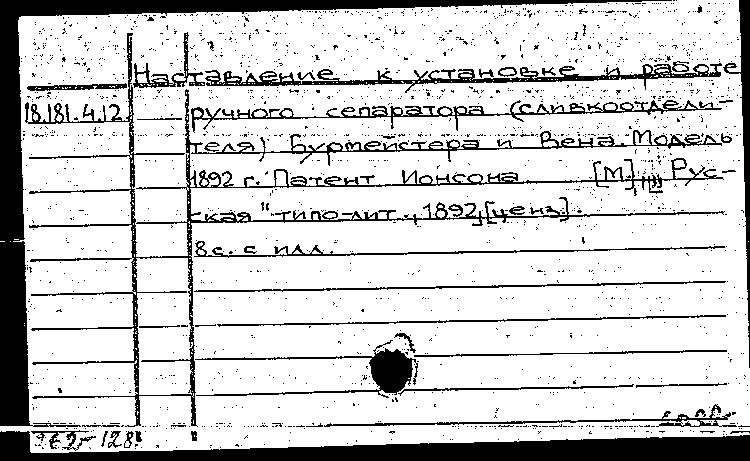 Наставление к установке и работе
18.181.4.12. ручного сепаратора (сливкоотдели-
теля) Бурмейстера и Вена. Модель
1892 г. Патент Ионсона [М], "Рус-
ская" типо-лит., 1892, [ценз].
8 с. с илл.